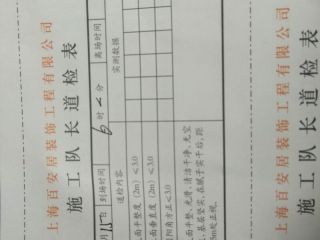 上海百安居装饰工程有限公司
施工队长道检表
到场时间 6时 分 离场时间
道检内容 实测数据
面平整度(2m)≤3.0
面垂直度(2m)≤3.0
阳角方正≤3.0
面平整、光滑、清洁干净、无空
、基层坚实，在腻子实干后，距
m处正视
上海百安居装饰工程有限公司
施工队长道检表